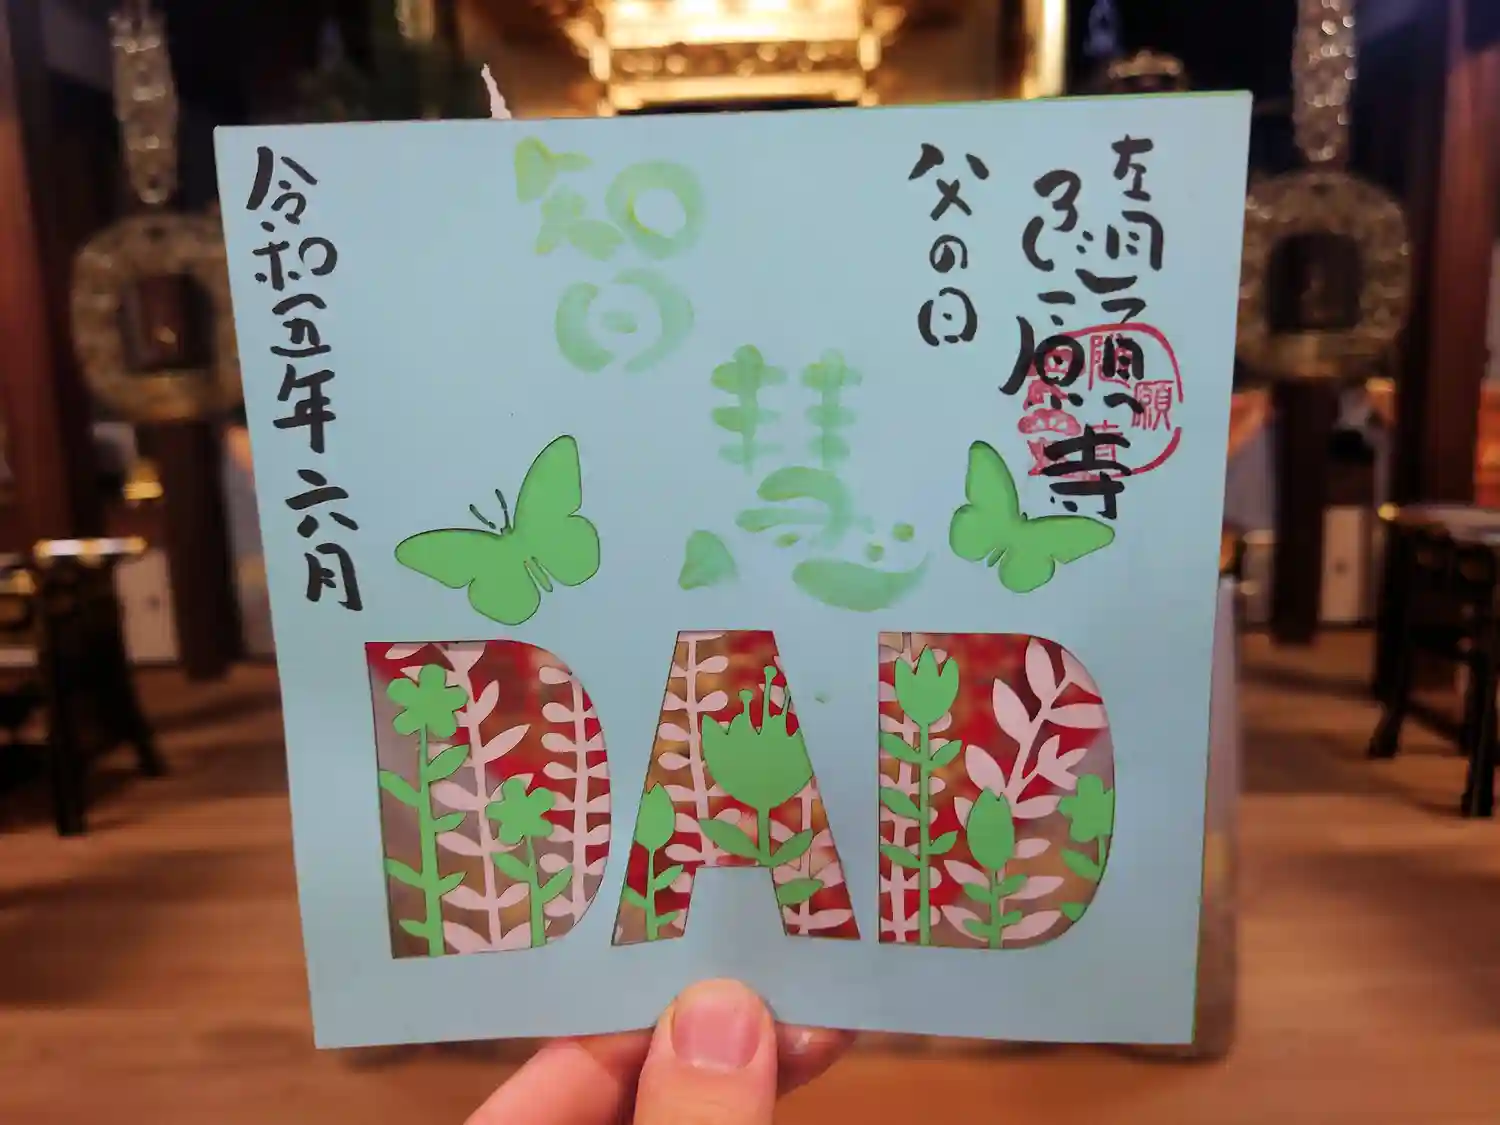 隨願寺
父の日
智慧
令和五年六月
DAD